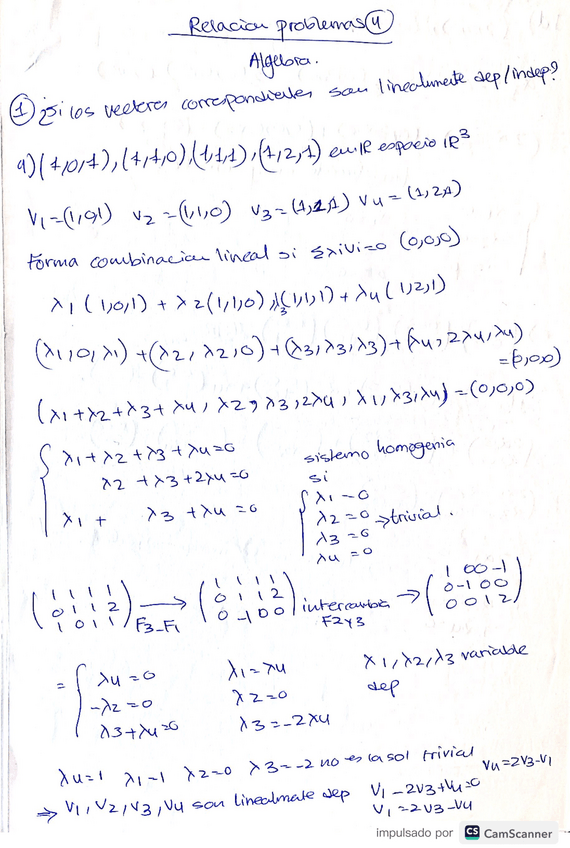 Relacion problemas 4
Algebra.
1 ¿Si los vectores correspondientes son linealmente dep/indep?
a) (1,0,1), (1,1,0), (1,1,1), (1,2,1) en IR espacio IR³
V1=(1,0,1) V2=(1,1,0) V3=(1,1,1) V4=(1,2,1)
Forma combinacion lineal si Σλivi=0 (0,0,0)
λ1 (1,0,1) + λ2(1,1,0) λ3(1,1,1) + λ4 (1,2,1)
(λ1,0,λ1) + (λ2, λ2,0) + (λ3,λ3,λ3) + (λ4, 2λ4, λ4)
=(0,0,0)
(λ1+λ2+λ3+λ4, λ2, λ3, 2λ4, λ1, λ3, λ4) = (0,0,0)
λ1+λ2+λ3+λ4=0 sistema homogenia
λ2+λ3+2λ4=0 si
λ1 + λ3 + λ4 = 0
λ1 = 0
λ2 = 0 → trivial.
λ3 = 0
λ4 = 0
1 1 1 1 1 1 1 1 1 0 0 -1
0 1 1 2 → 0 1 1 2 intercambio → 0 -1 0 0
1 0 1 1 F3-F1 0 -1 0 0 F2y3 0 0 1 2
= λ4 = 0 λ1=λ4 λ1, λ2, λ3 variable
-λ2 = 0 λ2=0 dep
λ3+λ4=0 λ3=-2λ4
λ4=1 λ1-1 λ2=0 λ3=-2 no es la sol trivial V4=2V3-V1
⇒ V1, V2, V3, V4 son linealmate dep V1-2V3+V4=0
V1=2V3-V4
impulsado por CS CamScanner